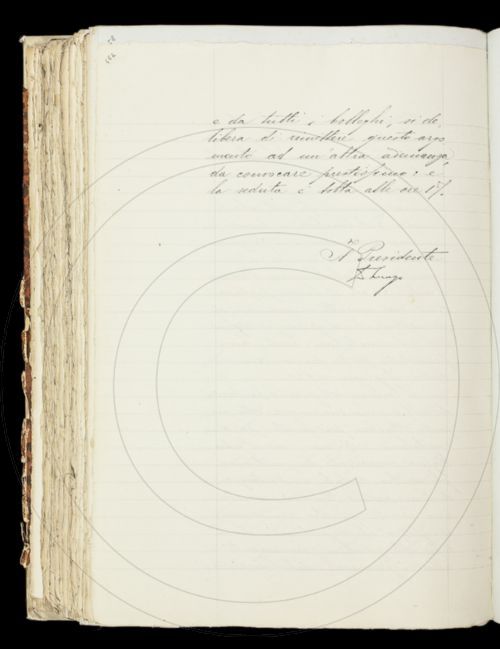 e da tutti i colleghi, si de
libera di rimettere questo argo
mento ad un'altra adunanza,
da convocare prestissimo: e
la seduta è tolta alle ore 17½.
Il Presidente